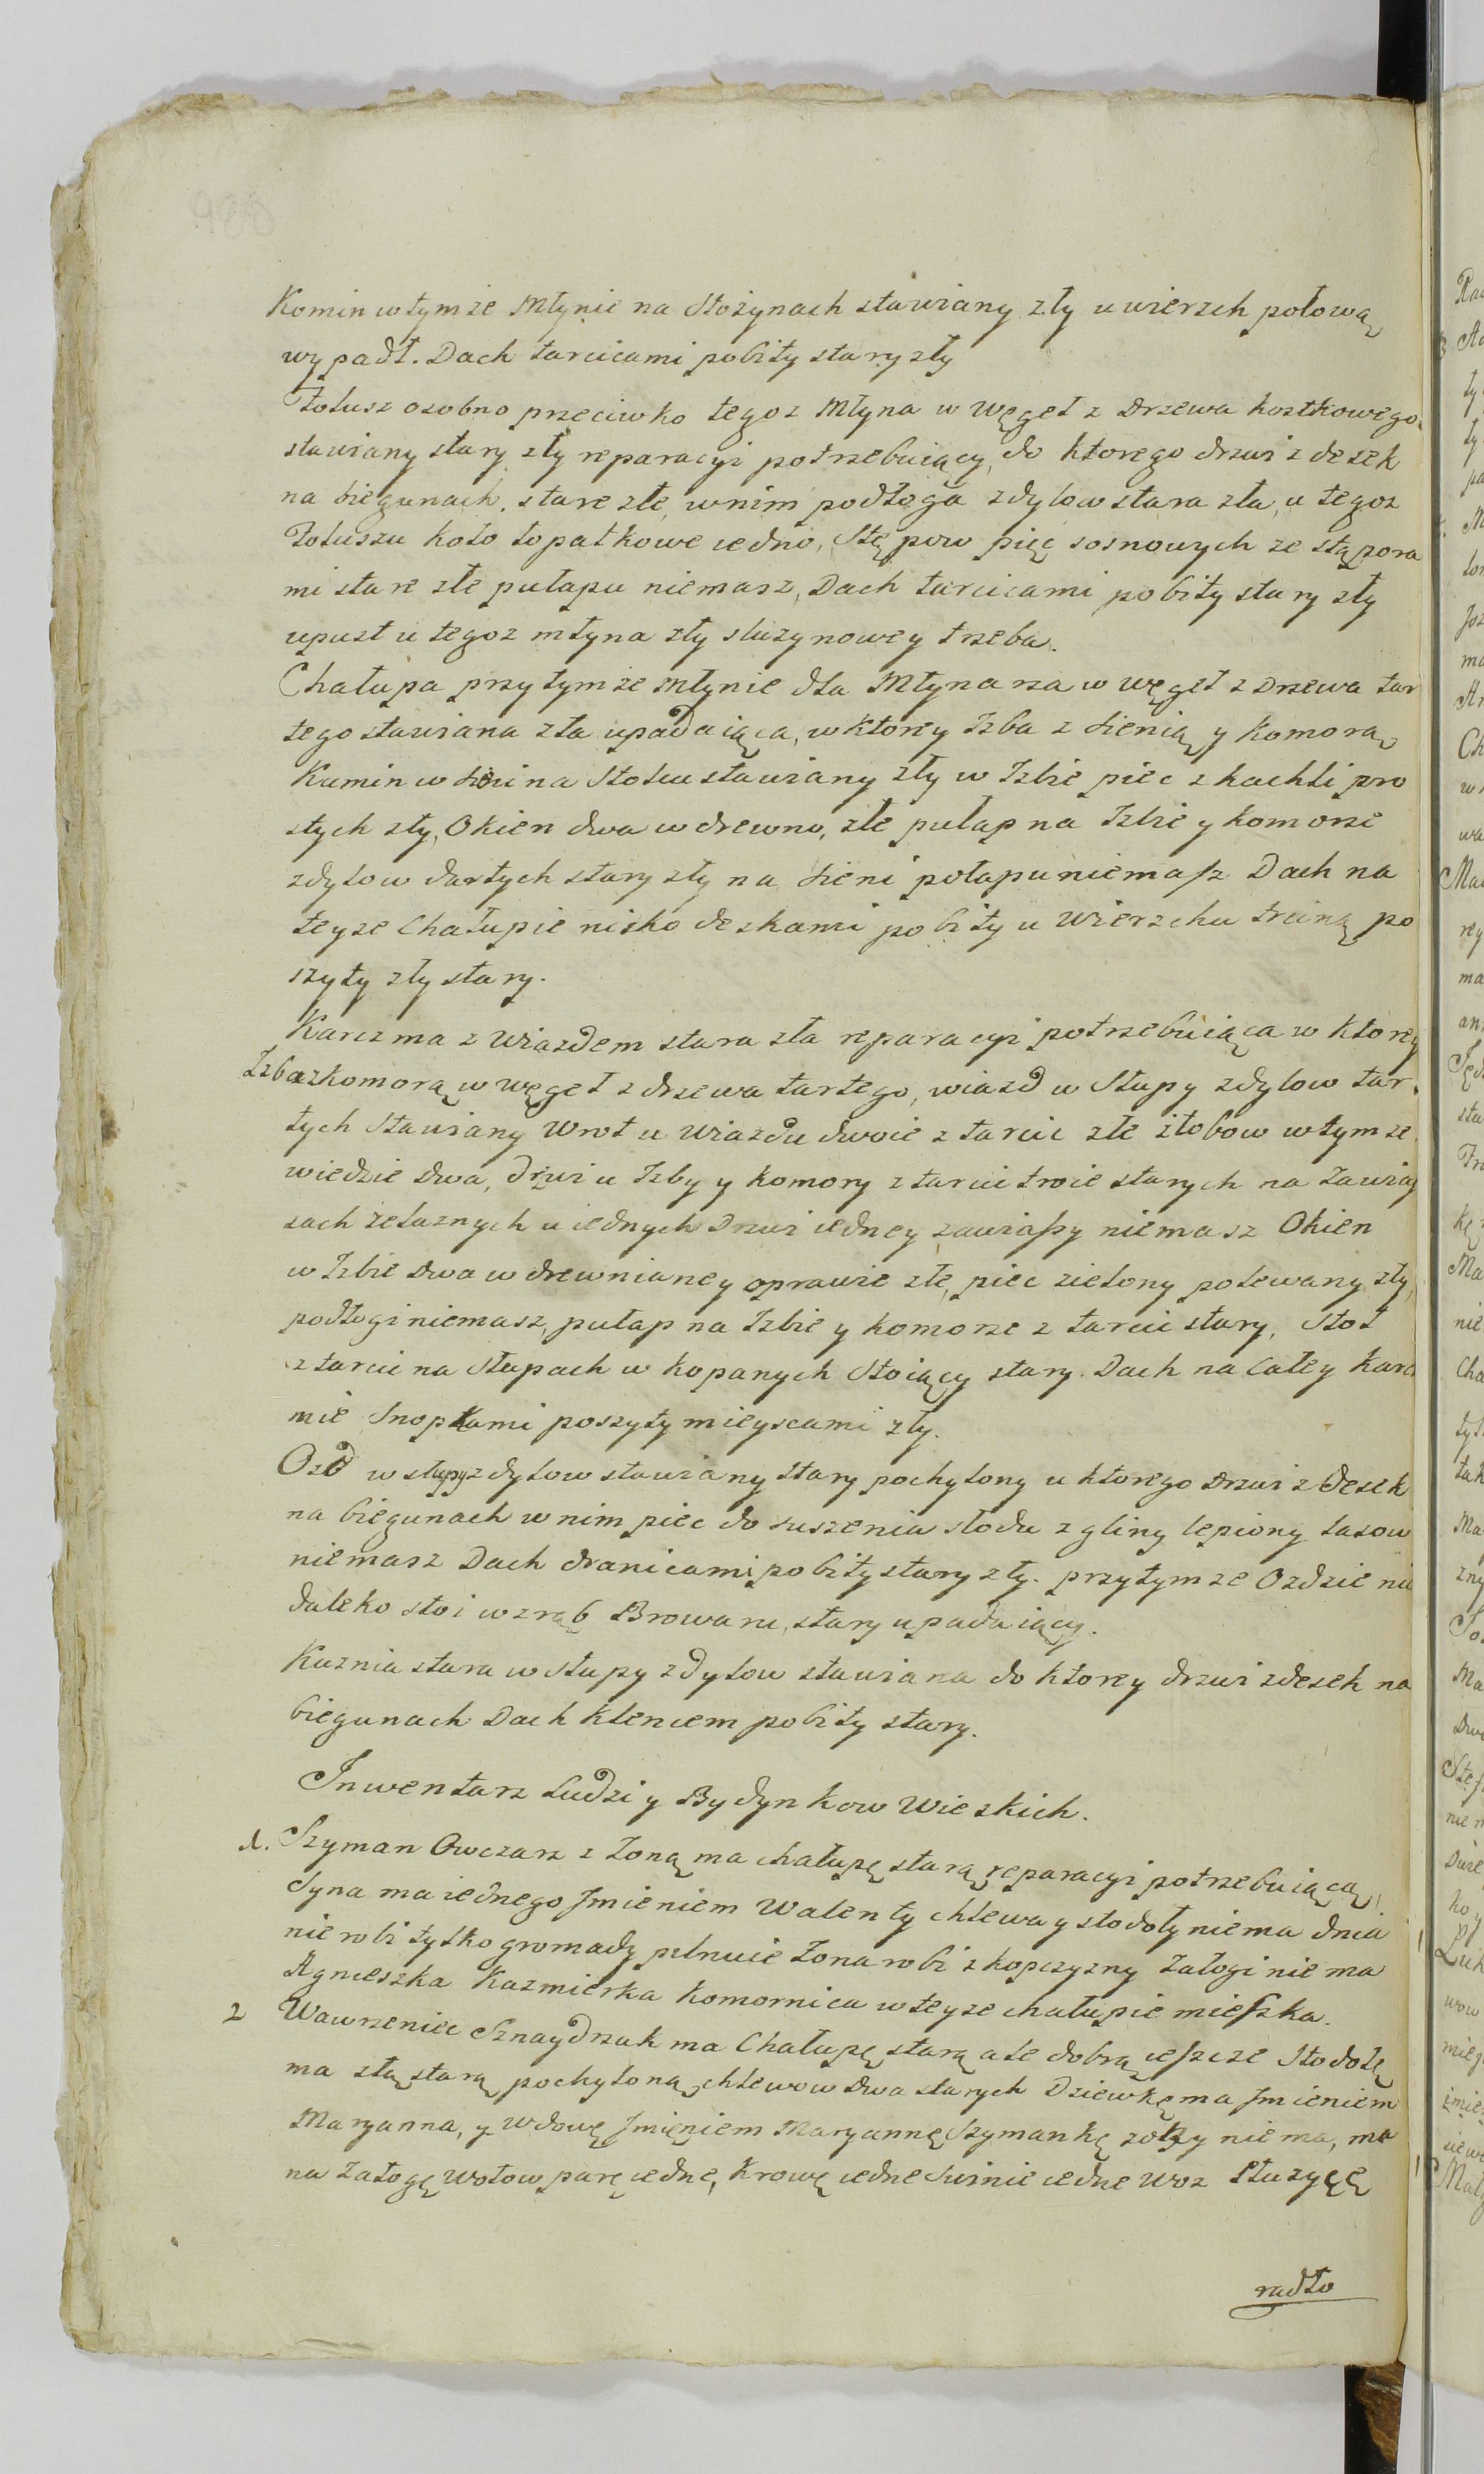 Komin w tymże Młynie na Stożynach stawiany zły u wierzch połową
wypadł. Dach tarcicami pobity stary zły
Folusz osobno przeciwko tegoz Młyna w Węgeł z Drzewa kostkowego
stawiany stary zły reparacyi potrzebuiący, do ktorego drzwi z desek
na biegunach, stare złe, w nim podłoga z dylow stara zła, u tegoz
Foluszu koło łopatkowe iedno, Stępow pięc sosnowych ze stąpora
mi stare złe pułapu niemasz, Dach tarcicami pobity stary zły
upust u tegoz młyna zły sluzy nowey trzeba.
Chałupa przy tymze Młynie dla Młynarza w węgeł z Drzewa tar
tego stawiana zła upadaiąca, w ktorey Izba z sienią y komorą
Kumin w sieni na Stolcu stawiany zły w Izbie piec z kachli pro
stych zły, Okien dwa w drewno, złe pułap na Izbie y komorze
z dylow dartych stary zły na sieni połapu niemasz Dach na
teyze Chałupie nisko deskami pobity u Wierzchu trciną po
szyty zły stary.
Karczma z Wiazdem stara zła reparacyi potrzebuiąca w ktorey
Izba z komorą w węgeł z drzewa tartego, wiazd w Słupy z dylow tar
tych Stawiany Wrot u Wiazdu dwoie z tarcic złe złobow w tymze
wiedzie dwa, drzwi u Izby y komory z tarcic troie starych na Zawia
sach zelaznych u iednych Drzwi iedney zawiassy niemasz Okien
w Izbie dwa w drewnianey oprawie złe, piec zielony polewany zły,
podłogi niemasz, pułap na Izbie y komorze z tarcic stary, Stoł
z tarcic na Słupach w kopanych Stoiący stary. Dach na Całey karcz
mie Snopkami poszyty mieyscami zły.
Ozd w słupy z dylow stawiany stary pochylony u ktorego Drzwi z desek
na biegunach w nim piec do suszenia słodu z gliny lepiony Lasow
niemasz Dach dranicami pobity stary zły. przy tymze Ozdzie nie
daleko stoi wzrąb Browaru, stary upadaiący.
Kuznia stara w słupy z dylow stawiana do ktorey drzwi z desek na
biegunach Dach kleńcem pobity stary.
Inwentarz Ludzi y Bydynkow Wieskich.
1. Szyman Owczarz z Zoną ma chałupę starą reparacyi potrzebuiącą,
Syna ma iednego Imieniem Walenty chlewa y stodoły niema dnia
nie robi tylko gromady pilnuie Zona robi z kopczyzny Załogi nie ma
Agnieszka Kazmierka Komornica w teyze chałupie mieszka.
2 Wawrzeniec Sznaydrzuk ma Chałupę starą ale dobrą ieszcze Stodołę
ma złą starą pochyloną, chlewow dwa starych Dziewkę ma Imieniem
Maryanna, y wdowę Imieniem Maryannę Szymankę niema, ma
na Załogę Wołow parę iedne, Krowę iedne Swinie iedne Woz Płuzycę
radło